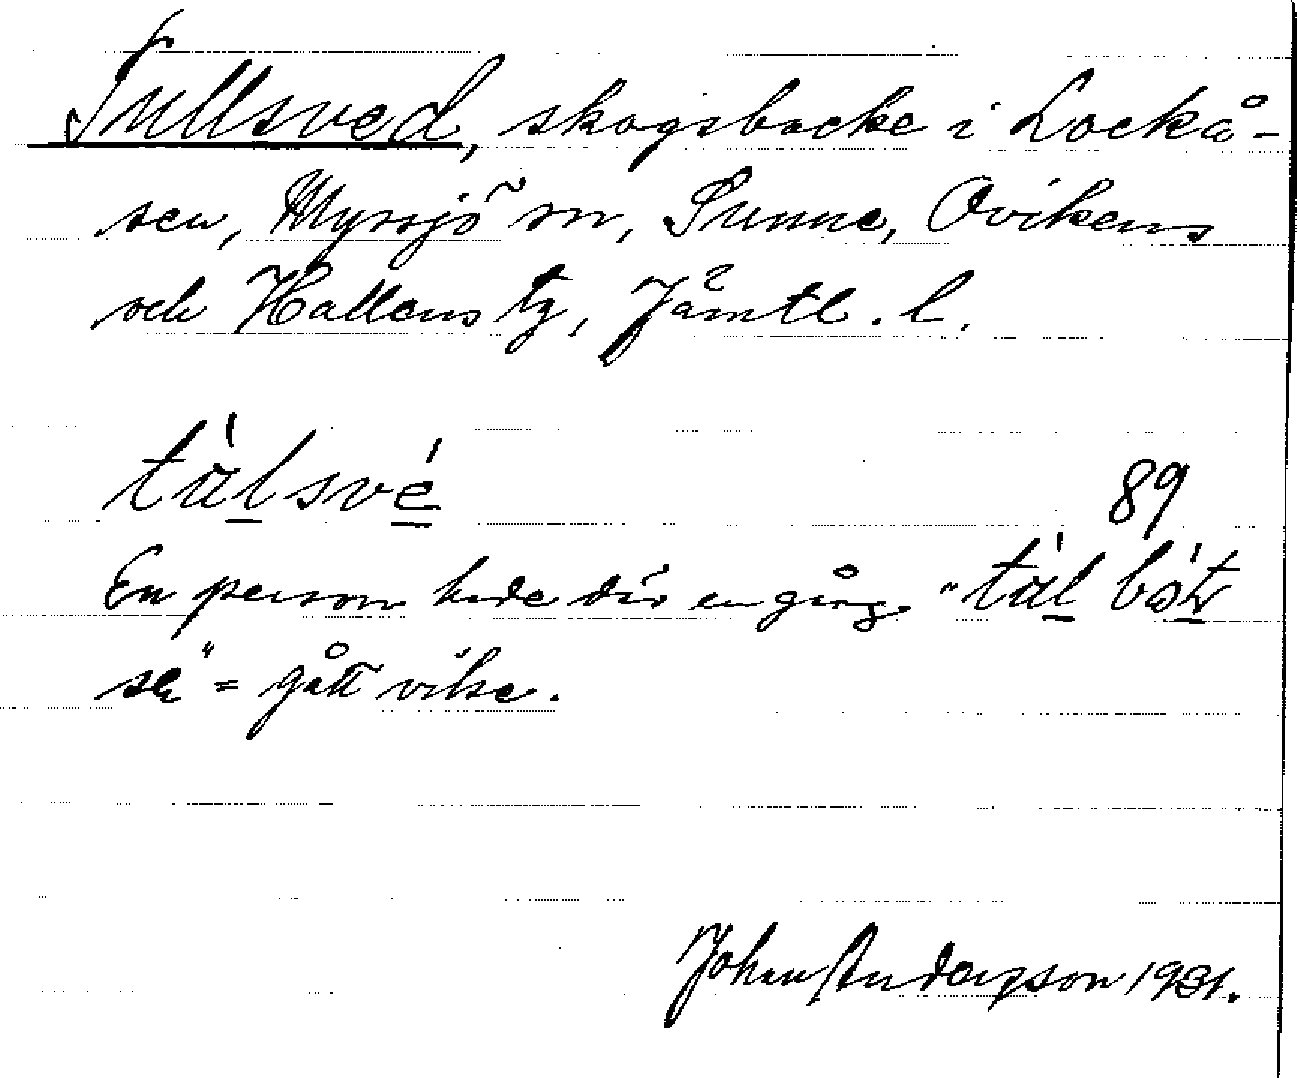 Tullsved, skogsbacke i Lockå-
sen, Myrsjö sn, Sunne, Ovikens
och Hallens tg, Jämtl. l.
tälsvé 89
En person hade där en gång "täl bót
se" = gått vilse.
Johan Andersson 1931.